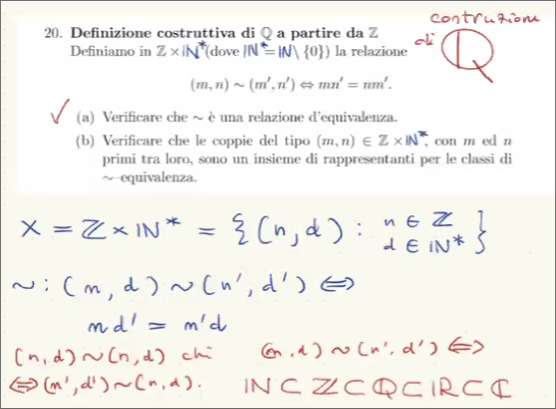 costruzione
di Q
20. Definizione costruttiva di ℚ a partire da ℤ
Definiamo in ℤ × ℕ* (dove ℕ* = ℕ \ {0}) la relazione
(m, n) ∼ (m′, n′) ⇔ mn′ = nm′.
✓ (a) Verificare che ∼ è una relazione d'equivalenza.
(b) Verificare che le coppie del tipo (m, n) ∈ ℤ × ℕ*, con m ed n
primi tra loro, sono un insieme di rappresentanti per le classi di
∼ equivalenza.
X = ℤ × ℕ* = {(n, d) : n ∈ ℤ d ∈ ℕ*}
∼ : (n, d) ∼ (n′, d′) ⇔
nd′ = n′d
(n, d) ∼ (n, d) chi (n, d) ∼ (n′, d′) ⇔
⇔ (n′, d′) ∼ (n, d). ℕ ⊂ ℤ ⊂ ℚ ⊂ ℝ ⊂ ℂ